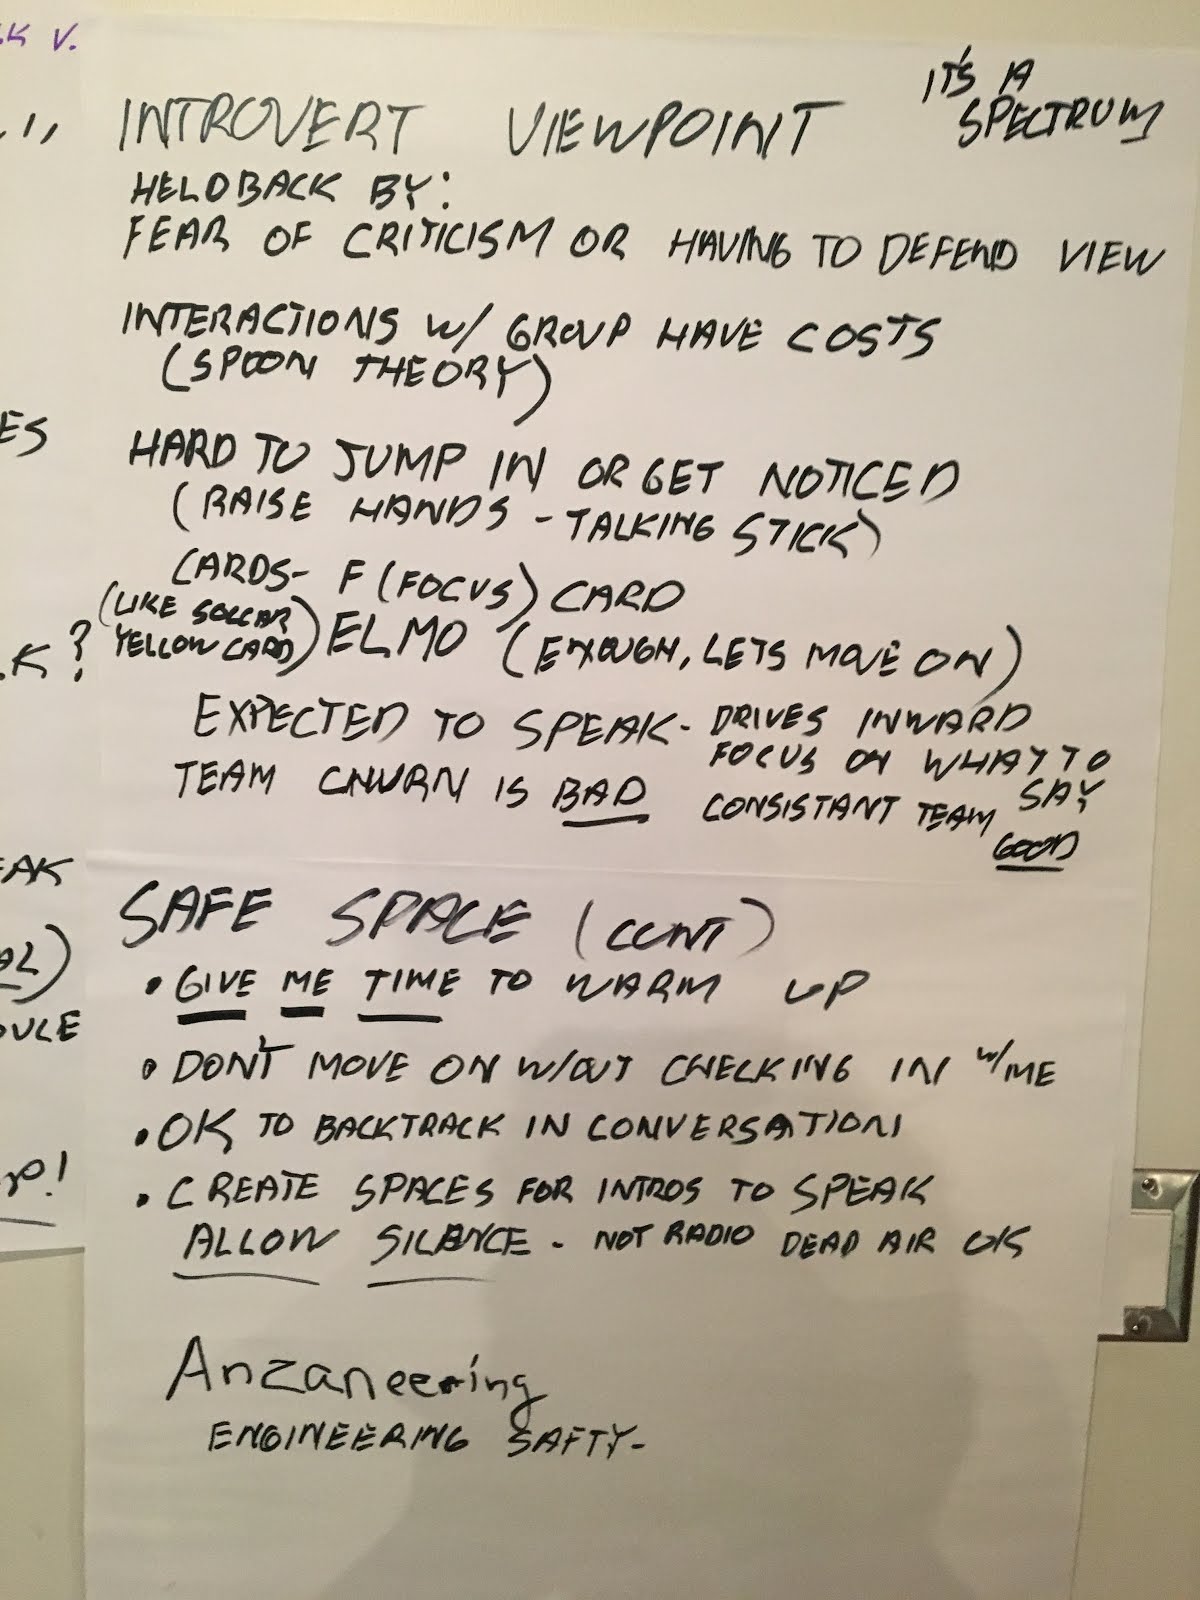 SK V.
INTROVERT VIEWPOINT
IT'S A
SPECTRUM
HELD BACK BY:
FEAR OF CRITICISM OR HAVING TO DEFEND VIEW
INTERACTIONS W/ GROUP HAVE COSTS
(SPOON THEORY)
ES
HARD TO JUMP IN OR GET NOTICED
(RAISE HANDS - TALKING STICK)
CARDS- F (FOCUS) CARD
(LIKE SOCCAR
YELLOW CARD) ELMO (ENOUGH, LETS MOVE ON)
K?
EXPECTED TO SPEAK- DRIVES INWARD
FOCUS ON WHAT TO
SAY
TEAM CHURN IS BAD CONSISTANT TEAM
GOOD
EAK
SAFE SPACE (CONT)
AL)
• GIVE ME TIME TO WARM UP
DULE
• DON'T MOVE ON W/OUT CHECKING IN W/ME
• OK TO BACKTRACK IN CONVERSATION
• CREATE SPACES FOR INTROS TO SPEAK
ALLOW SILENCE - NOT RADIO DEAD AIR OK
Anzaneering
ENGINEERING SAFTY-